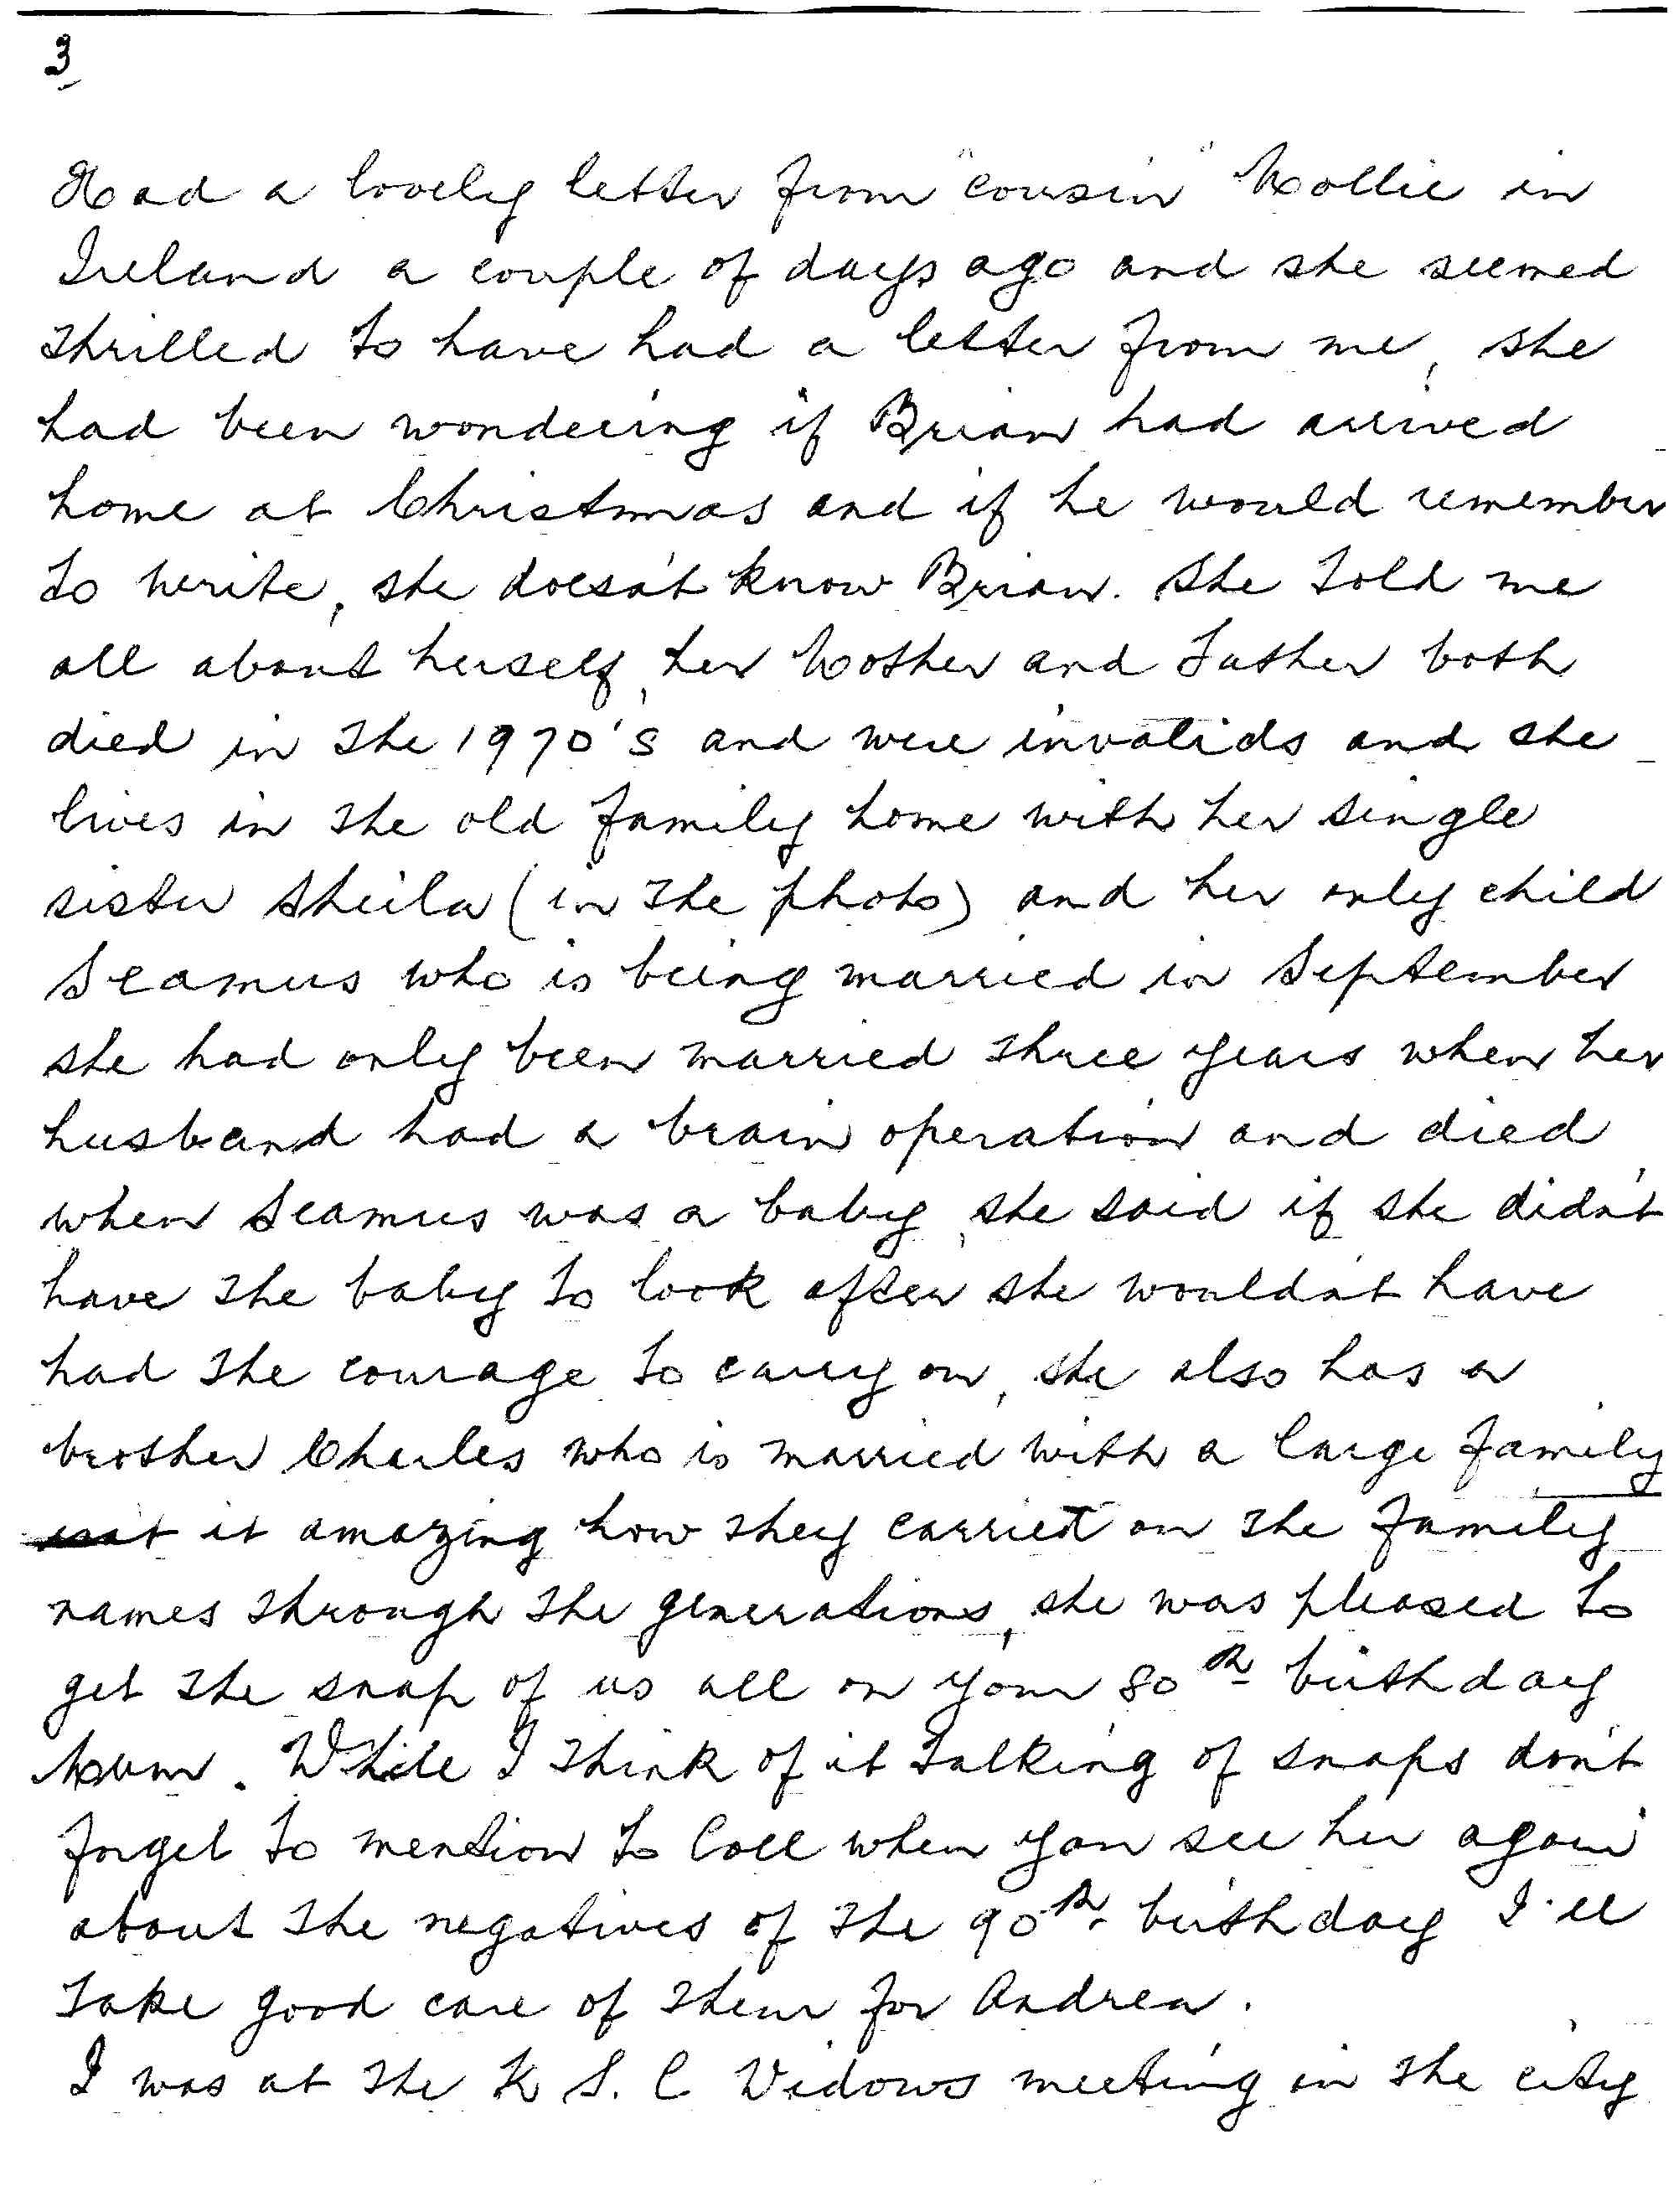 3
Had a lovely letter from "cousin" Mollie in
Ireland a couple of days ago and she seemed
thrilled to have had a letter from me, she
had been wondering if Brian had arrived
home at Christmas and if he would remember
to write, she doesn't know Brian. She told me
all about herself, her Mother and Father both
died in the 1970's and were invalids and she
lives in the old family home with her single
sister Sheila (in the photo) and her only child
Seamus who is being married in September
she had only been married three years when her
husband had a brain operation and died,
when Seamus was a baby, she said if she didn't
have the baby to look after she wouldn't have
had the courage to carry on, she also has a
brother Charles who is married with a large family
isn't it amazing how they carried on the family
names through the generations, she was pleased to
get the snap of us all on your 80th birthday
Mum. While I think of it talking of snaps don't
forget to mention to Coll when you see her again
about the negatives of the 90th birthday I'll
take good care of them for Andrew.
I was at the K S. C Widows meeting in the city